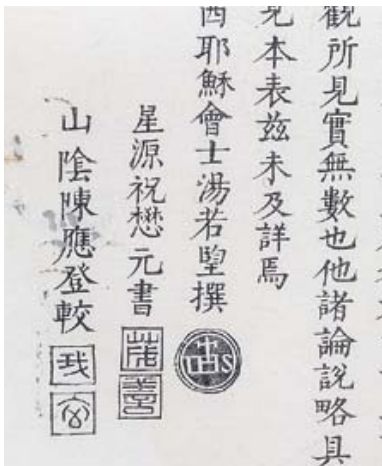 觀所見實無數也他諸論說略具
見本表茲未及詳焉
西耶穌會士湯若朢撰
IHS
星源祝懋元書
山陰陳應登較